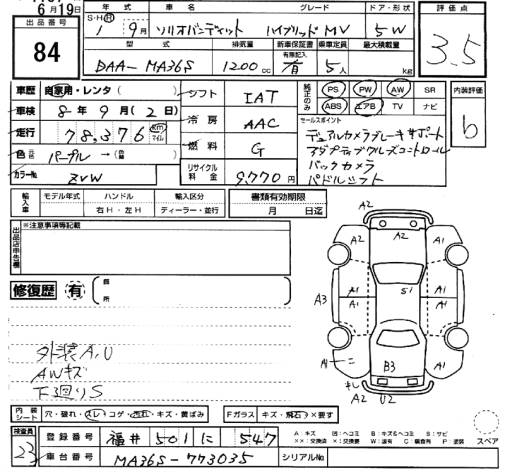 6月19日
出品番号
84
年式 車名 グレード ドア・形状
S・H・R 1年 9月 ソリオバンディット ハイブリッドMV 5W
型式 排気量 新車保証書 乗車定員 最大積載量
DAA-MA36S 1200cc 有無記入 有 5人 kg
評価点
3.5
車歴 自家用・レンタ( )
車検 8年9月(2日)
走行 78,376 km マイル
色 元色 パープル→色替( )
カラーNo ZVW
シフト IAT
冷房 AAC
燃料 G
リサイクル料金 9,770円
純正のみ PS PW AW SR
ABS エアB TV ナビ
内装評価
b
セールスポイント
デュアルカメラブレーキサポート
アダプティブクルーズコントロール
バックカメラ
パドルシフト
輸入車 モデル年式 ハンドル 輸入区分
右H・左H ディーラー・並行
書類有効期限
月 日迄
出品店申告欄
※注意事項等記載
修復歴 有 箇所
外装A,U
AWキズ
下廻りS
A2 A2
A2 A1
A2 A1
A3 S1
A1 A1
A1 B3
キレ
A2 U2
内装シート 穴・破れ・スレ・コゲ・汚れ・キズ・黄ばみ
Fガラス キズ・飛石・×要す
A:キズ U:ヘコミ B:キズ&ヘコミ S:サビ
××:交換済 ×:交換要 W:波有 C:腐食有 P:塗装
スペア
検査員
23
登録番号 福井 501 に 547
車台番号 MA36S-773035 シリアルNo